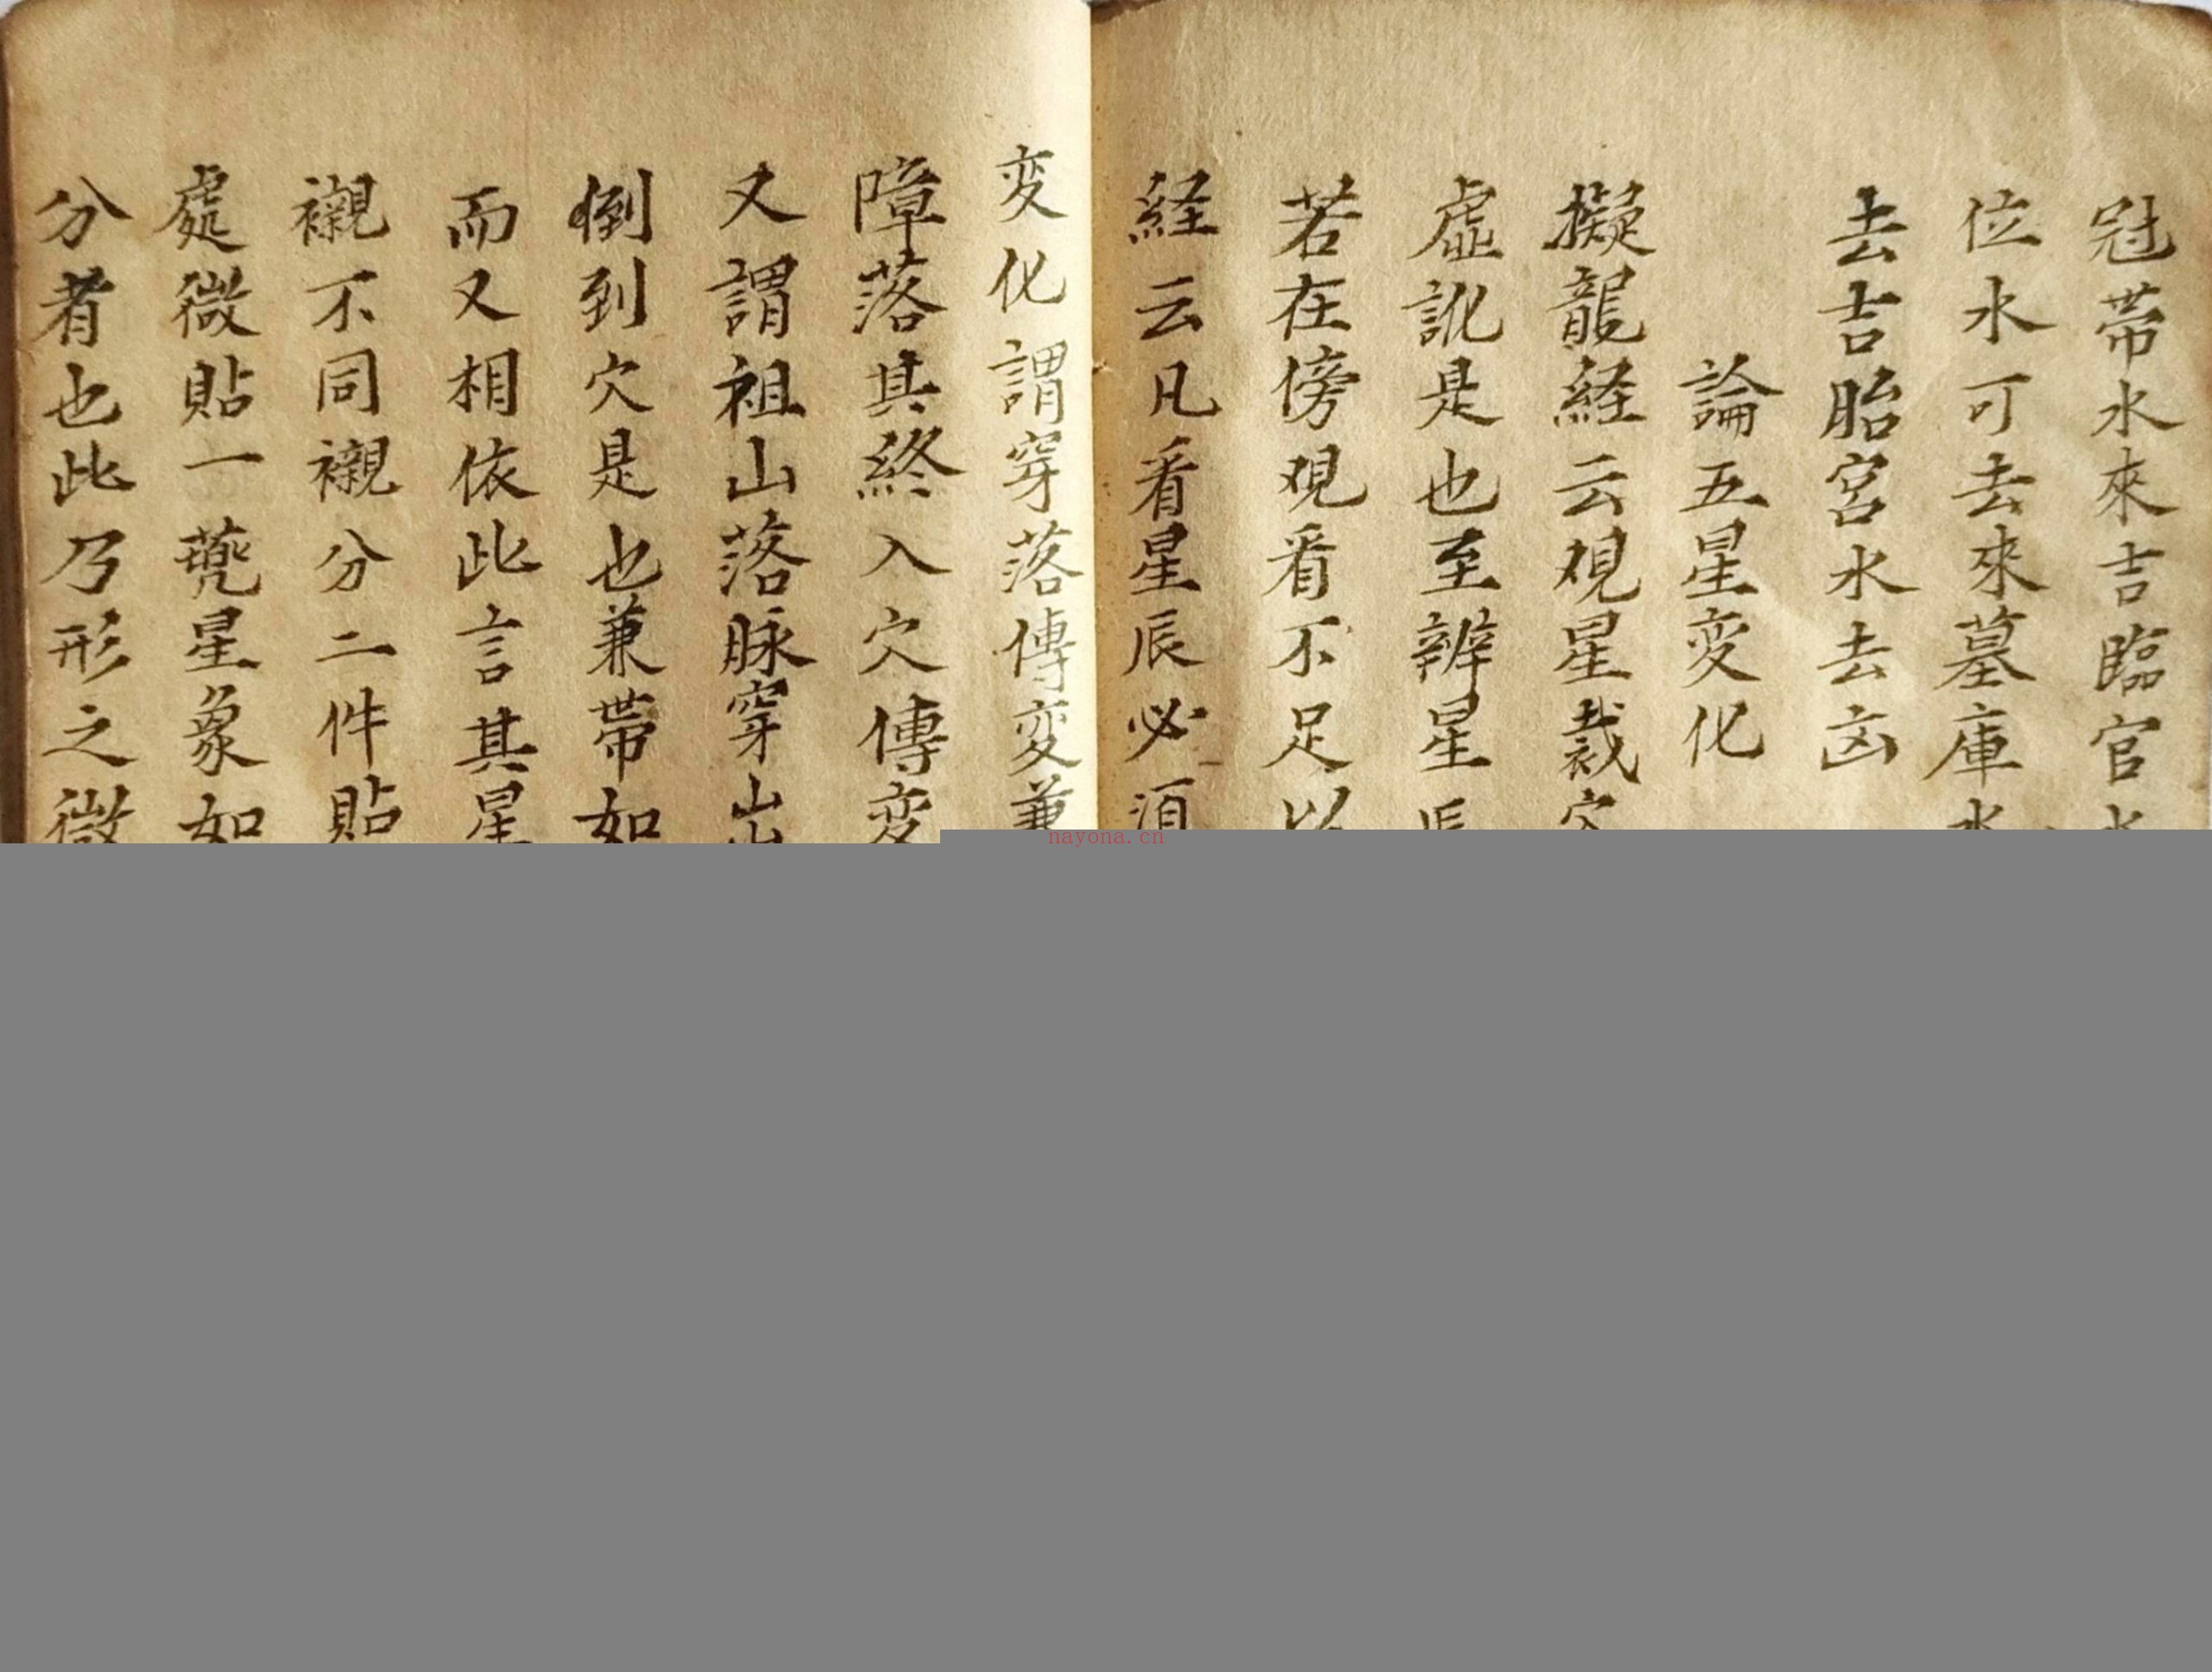 冠帯水來吉臨官水
位水可去來墓庫水
去吉胎宮水去凶
論五星变化
擬龍経云視星裁穴
虛訛是也至辨星辰
若在傍观看不足以
経云凡看星辰必須
变化謂穿落傳变兼
障落其終入穴傳变
又謂祖山落脉穿山
倒到穴是也兼帯如
而又相依此言其星
襯不同襯分二件貼
處微貼一 星象如
分者也此乃形之微
nayona.cn